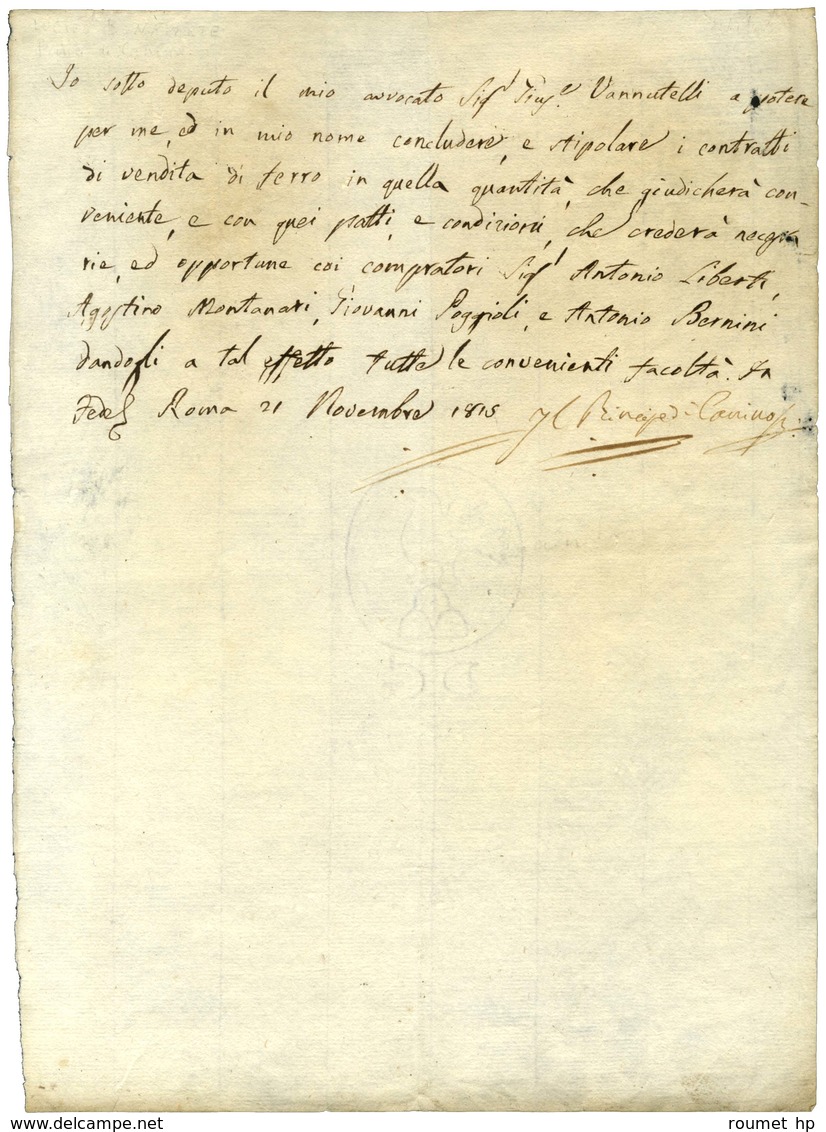 Io sotto deputo il mio avvocato Sigr Giuse. Vannutelli a potere
per me, ed in mio nome concludere, e stipolare i contratti
di vendita di ferro in quella quantità, che giudicherà con-
veniente, e con quei patti, e condizioni, che crederà necessa-
rie, ed opportune coi compratori Sigri Antonio Liberti,
Agostino Montanari, Giovanni Poggioli, e Antonio Bernini
dandogli a tal effetto tutte le convenienti facoltà. In
Fede Roma 21 Novembre 1815 Il Principe di Canino
roumet hp